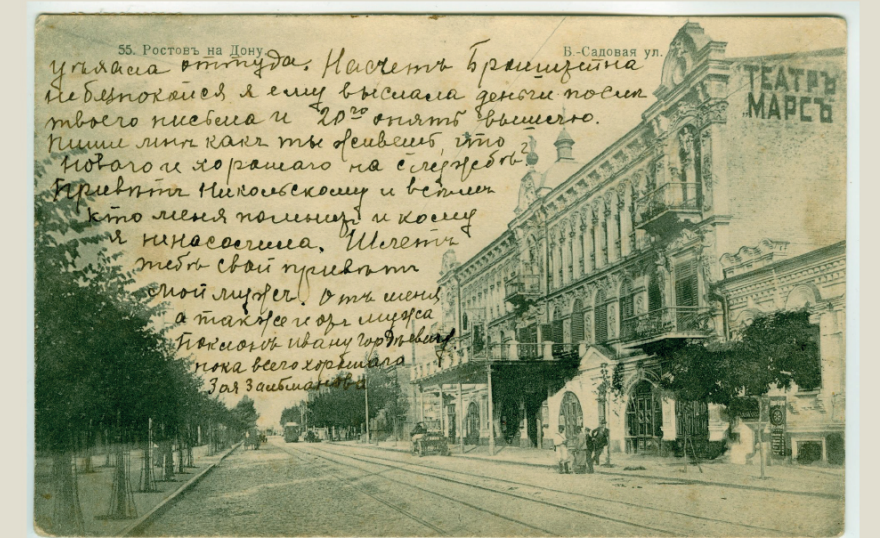 55. Ростовъ на Дону.
Б.-Садовая ул.
ТЕАТРЪ
„МАРСЪ
уѣхала оттуда. Насчетъ
небезпокойся я ему выслала деньги послѣ
твоего письма и 20го опять вышлю.
Пиши мнѣ какъ ты живешь, что
новаго и хорошаго на службѣ?
Привѣтъ Никольскому и всѣмъ
кто меня помнитъ и кому
я ненасолила. Шлетъ
тебѣ свой привѣтъ
мой мужъ. Отъ меня
а также и отъ мужа
поклонъ Ивану
пока всего хорошаго
Зоя